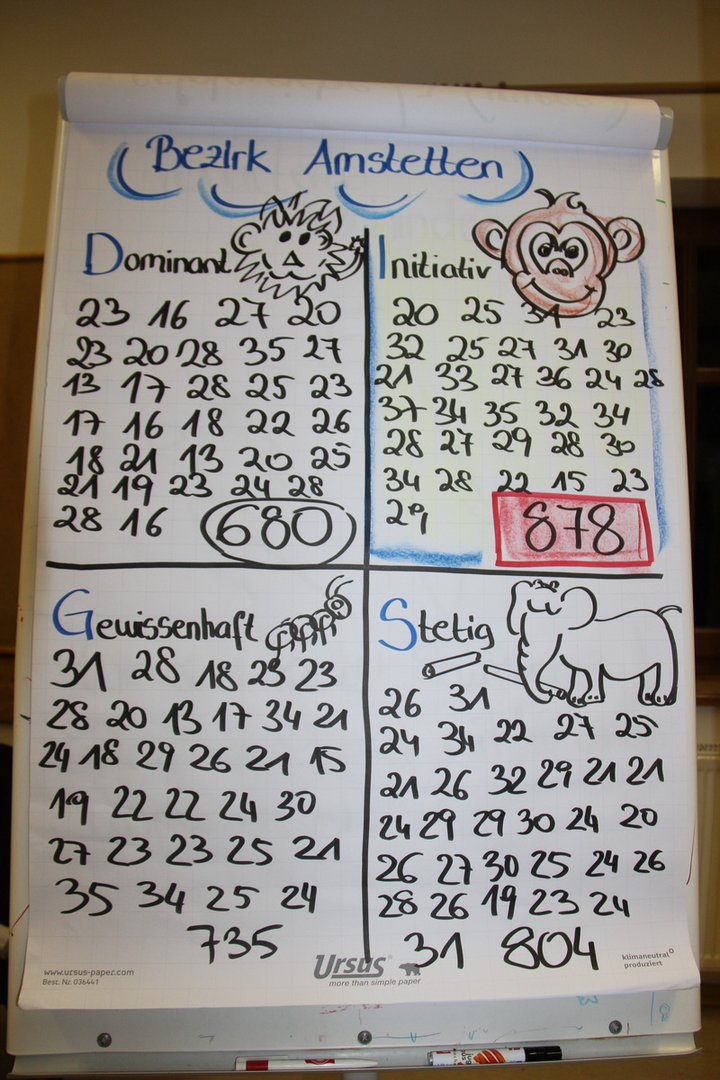 Bezirk Amstetten
Dominant
23 16 27 20
23 20 28 35 27
13 17 28 25 23
17 16 18 22 26
18 21 13 20 25
21 19 23 24 28
28 16 680
Initiativ
20 25 31 23
32 25 27 31 30
21 33 27 36 24 28
37 34 35 32 34
28 27 29 28 30
34 28 22 15 23
29 878
Gewissenhaft
31 28 18 23 23
28 20 13 17 34 21
24 18 29 26 21 15
19 22 22 24 30
27 23 23 25 21
35 34 25 24
735
Stetig
26 31
24 34 22 27 25
21 26 32 29 21 21
24 29 29 30 24 20
26 27 30 25 24 26
28 26 19 23 24
31 804
www.ursus-paper.com
Best. Nr. 036441
Ursus®
more than simple paper
klimaneutral
produziert